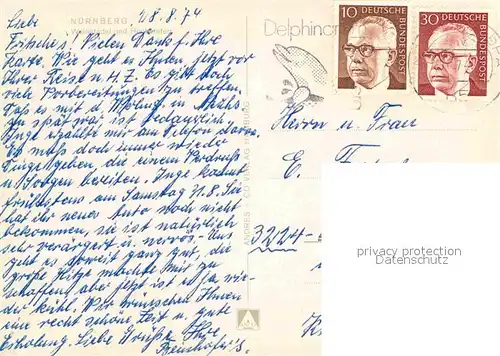 NÜRNBERG
28.8.74
Liebe
Fritsche's! Vielen Dank f. Ihre
Karte. Wie geht es Ihnen jetzt vor
Ihrer Reise u. H. Z. Es gibt doch
viele Vorbereitungen zu treffen.
Daß es mit d. Wohng. in
zu spät war ist bedauerlich.
Inge erzählte mir am Telefon davon.
Es muß doch immer wieder
Dinge geben, die einem Verdruß
u. Sorgen bereiten. Inge kommt
frühestens am Samstag 31.8. Sie
hat ihr neues Auto noch nicht
bekommen, sie ist natürlich
sehr verärgert u. nervös. Uns
geht es soweit ganz gut, die
große Hitze machte mir zu
schaffen, aber jetzt ist es ja wie-
der kühl. Wir wünschen Ihnen
eine recht schöne Zeit u. gute
Erholung. Liebe Grüße Ihre
ANDRES + CO VERLAG HAMBURG
Delphin
10
DEUTSCHE
BUNDESPOST
30
DEUTSCHE
BUNDESPOST
Herrn u. Frau
E.
3224
privacy protection
Datenschutz